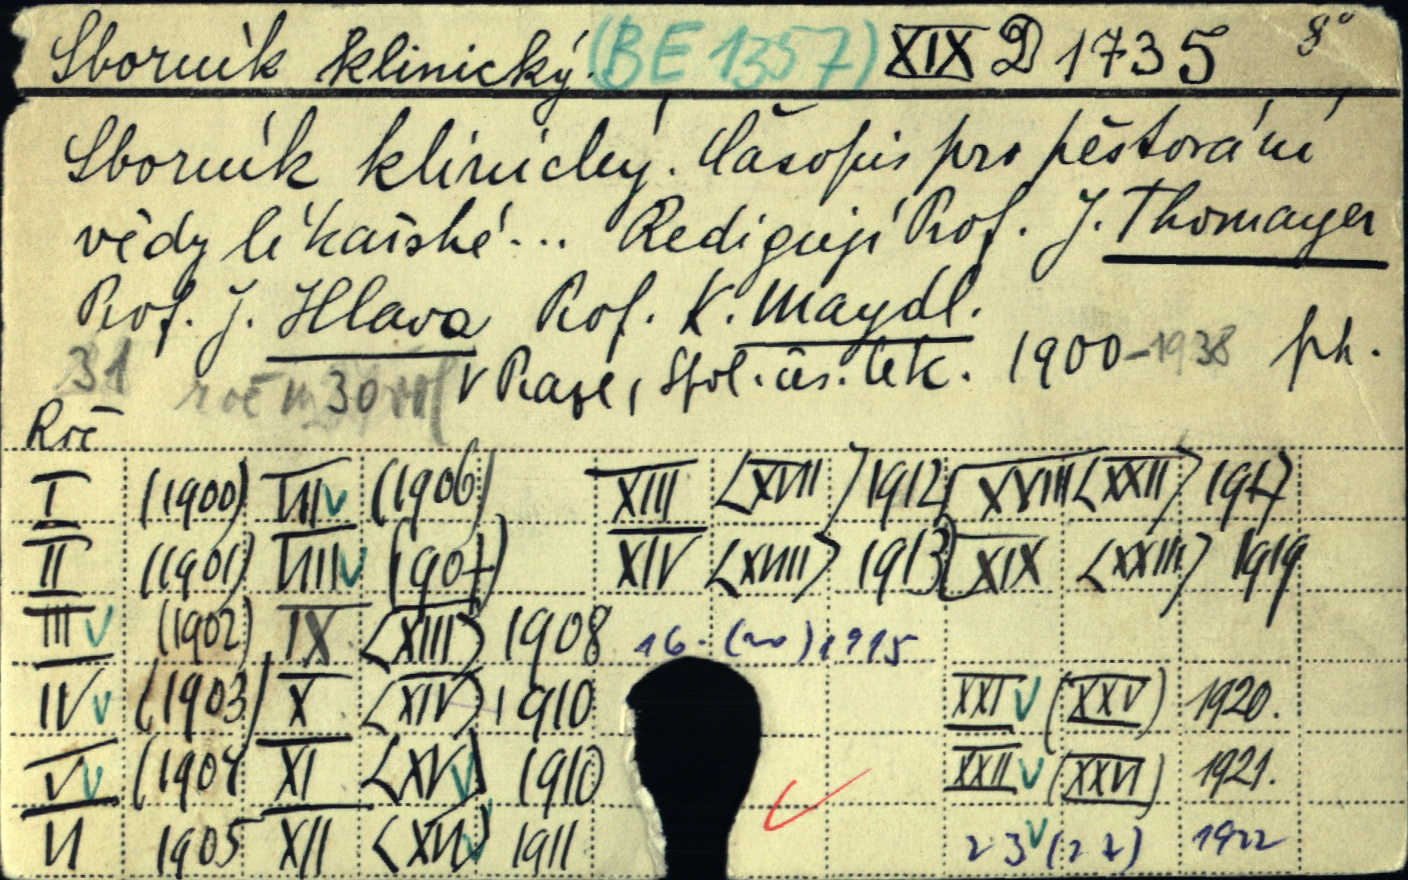 Sborník klinický. (BE 1357) XIX D 1735 8°
Sborník klinický. Časopis pro pěstování
vědy lékařské... Redigují Prof. J. Thomayer
Prof. J. Hlava Prof. K. Maydl.
31 roč 30 V Praze, Spol. čes. lék. 1900-1938
Roč
I (1900) VII v (1906) XIII <XVII> 1912 XVIII <XXII> 1917
II (1901) VIII v (1907) XIV <XVIII> 1913 XIX <XXIII> 1919
III v (1902) IX <XIII> 1908 16. (20) 1915
IV v (1903) X <XIV> 1910 XXI v (XXV) 1920.
V v (1904 XI <XV v> 1910 XXII v (XXVI) 1921.
VI 1905 XII <XVI v> 1911 23 v (27) 1922